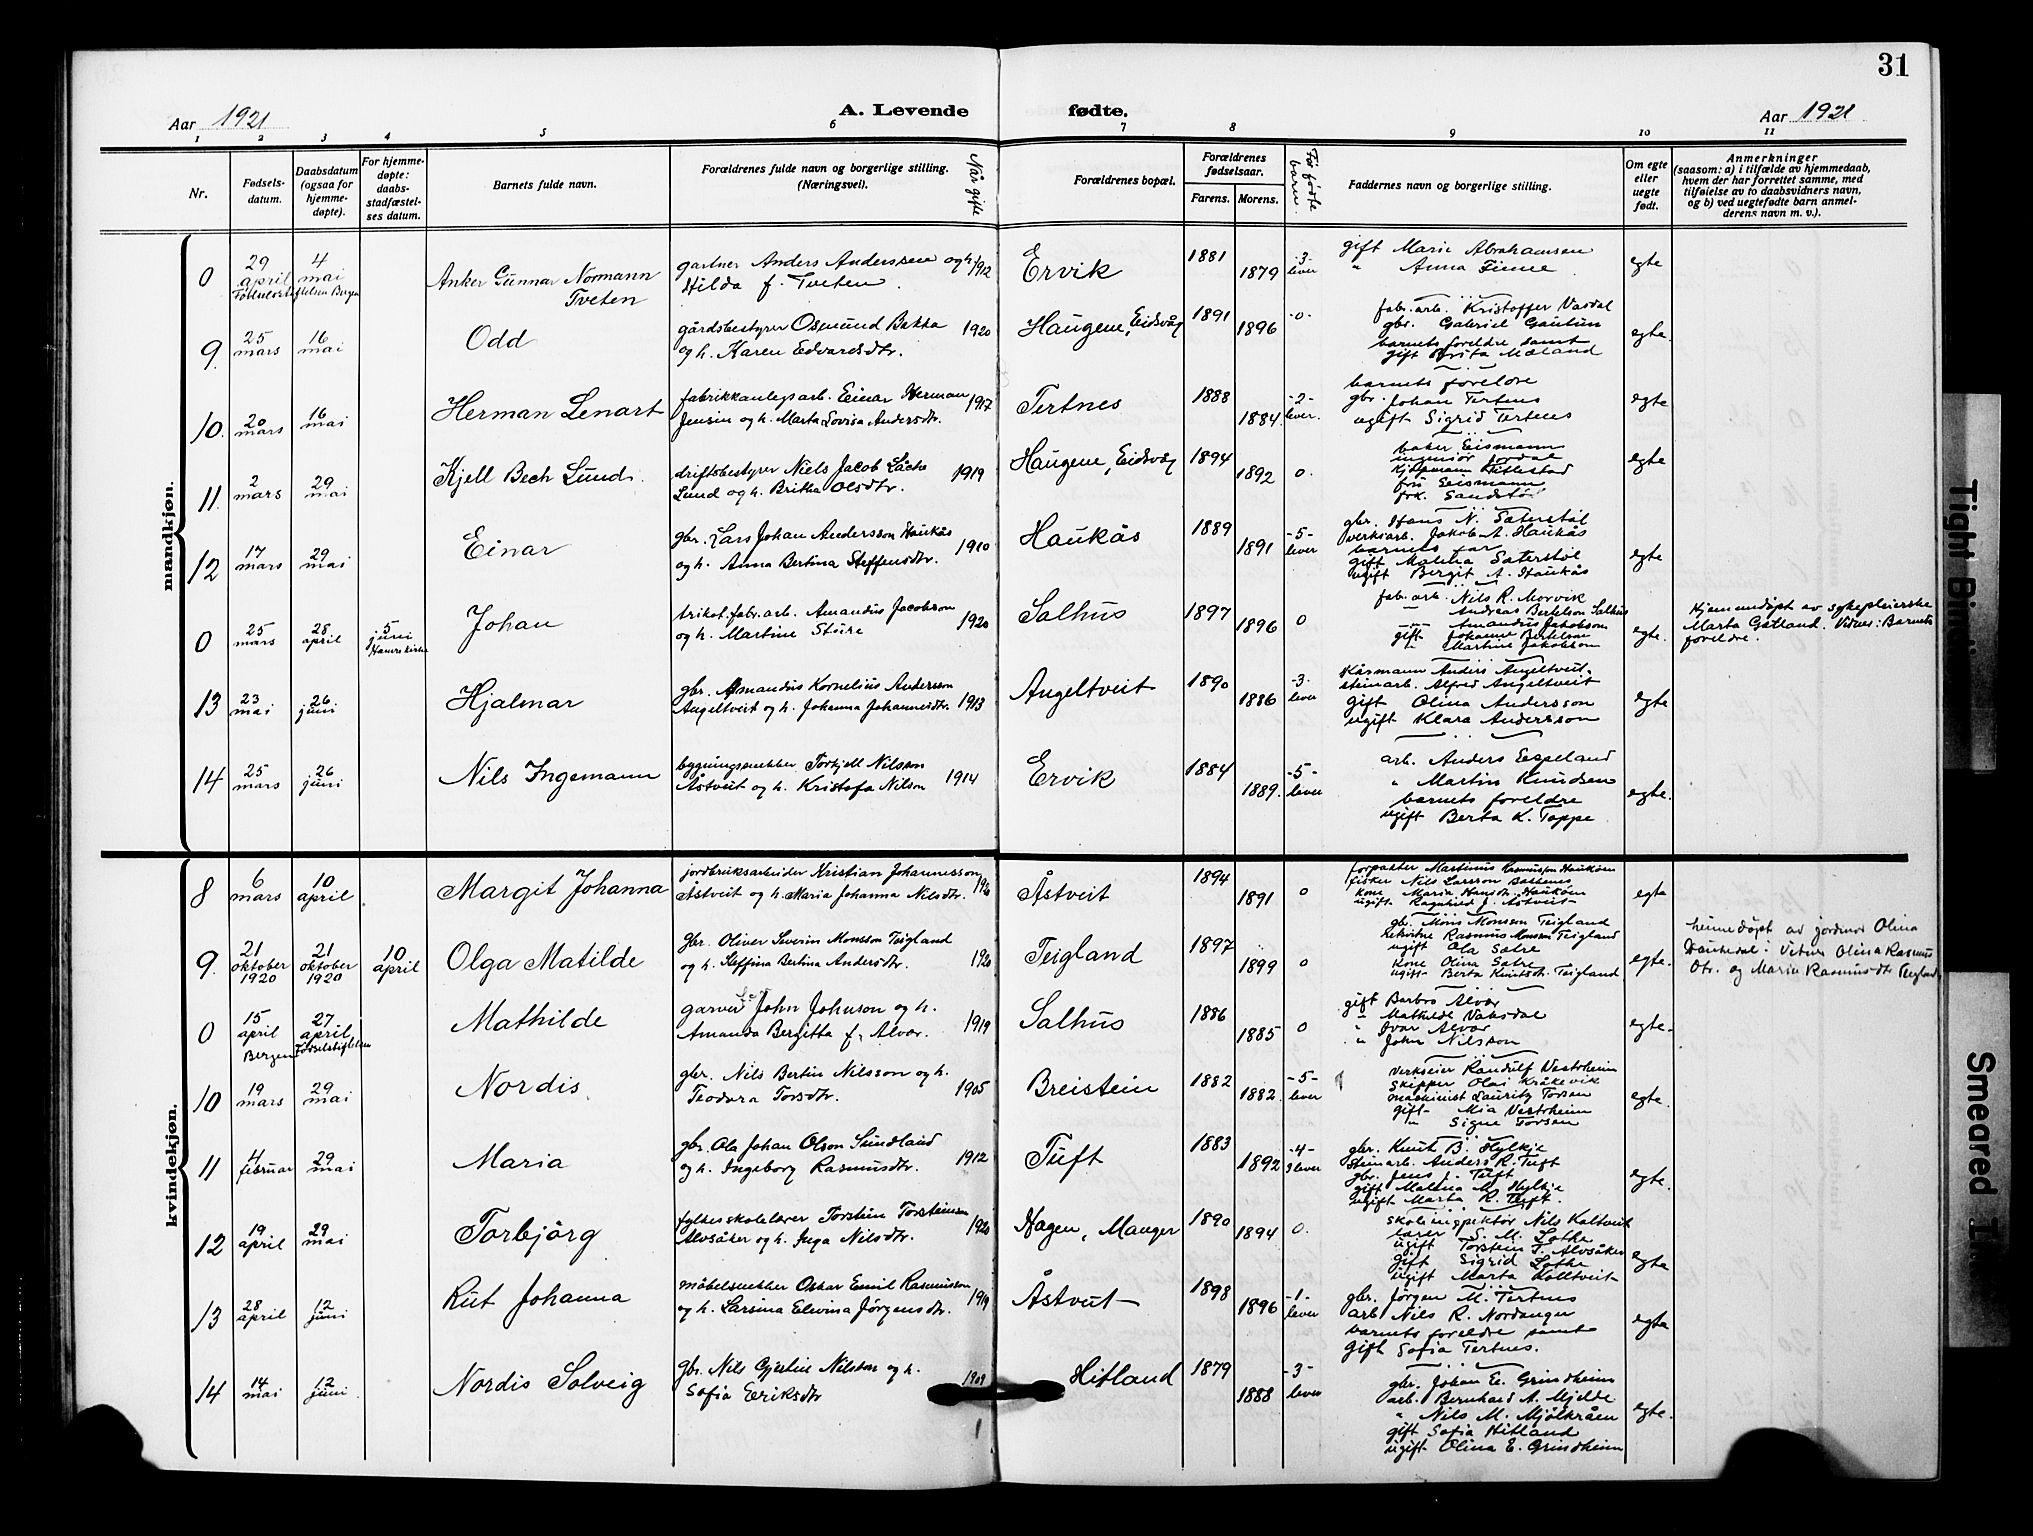 31
Aar 1921
A. Levende
fødte.
Aar 1921
1 2 3 4 5 6 7 8 9 10 11
Nr.
Fødsels-
datum.
Daabsdatum
(ogsaa for
hjemme-
døpte).
For hjemme-
døpte:
daabs-
stadfæstel-
ses datum.
Barnets fulde navn.
Forældrenes fulde navn og borgerlige stilling.
(Næringsvei).
Når gifte
Forældrenes bopæl.
Forældrenes
fødselsaar.
Farens. Morens.
Før fødte
barn.
Faddernes navn og borgerlige stilling.
Om egte
eller
uegte
født.
Anmerkninger
(saasom: a) i tilfælde av hjemmedaab,
hvem der har forrettet samme, med
tilføielse av to daabsvidners navn,
og b) ved uegtefødte barn anmel-
derens navn m. v.).
mandkjøn.
0 29 april 4 mai
Bergen
Anker Gunnar Normann
Tveten
gartner Anders Anderssen og h.
Hilda f. Tveten
1912
Ervik
1881 1879
-3-
lever
gift Marie Abrahamsen
" Anna Finne
egte
9. 25 mars 16 mai
Odd
gårdsbestyrer Osmund Bakka
og h. Karen Edvardsdtr.
1920
Haugene, Eidsvåg
1891 1896
-0-
fabr.arb. Kristoffer Vasdal
gbr. Gabriel Gautun
barnets foreldre samt
gift Brita Mæland
egte.
10. 20 mars 16 mai
Herman Lenart
fabrikkanlegsarb. Einar Herman
Jensen og h. Marta Lovisa Andersdtr.
1917
Tertnes
1888 1884
-2-
lever.
barnets foreldre
gbr. Johan Tertnes
ugift Sigrid Tertnes
egte
11. 2 mars 29 mai
Kjell Bech Lund.
driftsbestyrer Niels Jacob
Lund og h. Britha Olsdtr.
1919
Haugene, Eidsvåg
1894 1892
0.
baker Eismann
ingeniør Jordal
kjøpmann Titlestad
fru Eismann
frk. Sandstö
egte
12 17 mars 29 mai
Einar
gbr. Lars Johan Andersson Haukås
og h. Anna Bertina Steffensdtr.
1910
Haukås
1889 1891
-5-
lever
gbr. Hans N. Sæterstøl
verksarb. Jakob A. Haukås
barnets far
gift Malena Sæterstøl
ugift Bergit A. Haukås
egte
0 25 mars 28 april 5 juni
Hamre kirke
Johan
trikot.fabr.arb. Amandus Jacobson
og h. Martine Støre
1920
Salhus
1897 1896
0
fab. arb. Nils R. Morvik
—"— Andreas Bertelson Salhus
—"— Amandus Jakobson
gift Johanne Bertelson
" Martine Jakobson
egte.
Hjemmedøpt av sykepleierske
Marta Gatland. Vitner: Barnets
foreldre.
13 23 mai 26 juni
Hjalmar
gbr. Amandus Kornelius Andersson
Angeltveit og h. Johanna Johannesdtr.
1913
Angeltveit
1890 1886
-3-
lever
Kåsmann Anders Angeltveit
steinarb. Alfred Angeltveit
gift Olina Andersson
ugift Klara Andersson
egte
14 25 mars 26 juni
Nils Ingemann
bygningssnekker Torkjell Nilsson
Åstveit og h. Kristofa Nilson
1914
Ervik
1884 1889.
-5-
lever
arb. Anders Espeland
" Martin Knudsen
barnets foreldre
ugift Berta K. Toppe
egte.
kvindekjøn.
8 6 mars 10 april
Margit Johanna
jordbruksarbeider Kristian Johannesson
Åstveit og h. Maria Johanna Nilsdtr.
1920
Åstveit
1894 1891
0
forpakter Martinus Rasmusson Haukom
fisker Nils Larsson Ballenes
kone Maria Hansdtr. Haukom
ugift Ragnhild J. Åstveit
egte
9. 21 oktober 1920 21 oktober 1920 10 april
Olga Matilde
gbr. Oliver Severin Monsson Teigland
og h. Steffina Bertina Andersdtr.
1920
Teigland
1897 1899
0
gbr. Mons Monssen Teigland
Rasmus Monssen Teigland
ugift Ola Satre
kone Olina Satre
ugift Berta Knutsdtr. Teigland
egte.
heimedøpt av jordmor Olina
Vitner Olina Rasmus
Dtr. og Maria Rasmusdtr Teigland
0 15 april Bergen 27 april Fødselstiftelsen
Mathilde
garver John Johnson og h.
Amanda Bergitta f. Alvær.
1919
Salhus
1886 1885
0
gift Barbro Alvær
" Mathilde Vaksdal
" Ivar Alvær
" John Nilsson
egte-
10 19 mars 29 mai
Nordis.
gbr. Nils Bertin Nilsson og h.
Teodora Torsdtr.
1905
Breistein
1882 1882.
-5-
lever
verkseier Randulf Vestrheim
skipper Olai Kråkevik
maskinist Lauritz Torsen
gift Mia Vestrheim
" Signe Torsen
egte.
11 4 februar 29 mai
Maria
gbr. Ola Johan Olson Sundland
og h. Ingeborg Rasmusdtr.
1912
Tuft
1883 1892
-4-
3 lever
gbr. Knut B. Hylkje
steinarb. Anders R. Tuft
gbr. Jens J. Tuft
gift Malena M. Hylkje
ugift Marta R. Tuft.
egte.
12 19 april 29 mai
Torbjörg
fylkesskolelærer Torstein Torsteinson
Alvsåker og h. Inga Nilsdtr.
1920
Hagen, Manger
1890 1894
0.
skoleinspektør Nils Koltveit
lærer S. M. Lothe
ugift Torstein T. Alvsåker
gift Sigrid Lothe
ugift Marta Kolltveit
egta
13 28 april 12 juni
Rut Johanna
møbelsnekker Oskar Emil Rasmusson
og h. Larsina Elevina Jørgensdtr.
1919
Åstveit
1898 1896
-1-
lever
gbr. Jørgen M. Tertnes
arb. Nils R. Nordanger
barnets foreldre samt
gift Sofia Tertnes.
egta
14 14 mai 12 juni.
Nordis Solveig
gbr. Nils Gjertin Nilsson og h.
Sofia Eriksdtr
1909
Hitland
1879 1888
-3-
lever
gbr. Johan E. Grindheim
arb. Bernhard A. Mjelde
" Nils M. Mjölkråen
gift Sofia Hitland
ugift Olina E. Grindheim
egte.
Tight Bin
Smeared